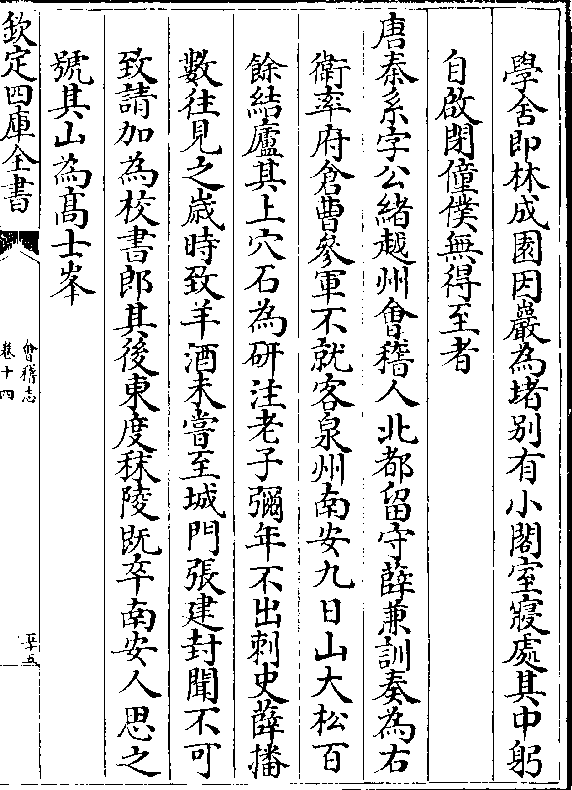 學舍即林成園因巖為堵别有小閣室寢處其中躬
自啟閉僮僕無得至者
唐秦系字公緒越州會稽人北都留守薛兼訓奏為右
衛率府倉曹參軍不就客泉州南安九日山大松百
餘結廬其上穴石為研注老子彌年不出刺史薛播
數往見之歲時致羊酒未嘗至城門張建封聞不可
致請加為校書郎其後東度秣陵既卒南安人思之
號其山為髙士峯
欽定四庫全書
會稽志
卷十四
二十五